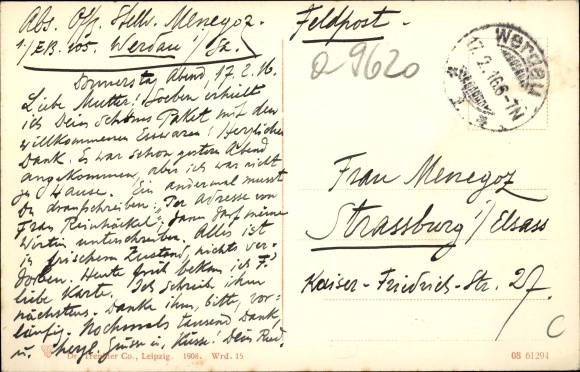 Abs. Off. Stellv. Menegoz.
1./EB. 105. Werdau i/Sa.
Feldpost.
Werdau
17.2.16.6-7N
a 9620
Donnerstag Abend, 17.2.16.
Liebe Mutter! Soeben erhielt
ich Dein schönes Paket mit den
willkommenen Esswaren! Herzlichen
Dank. Es war schon gestern Abend
angekommen, aber ich war nicht
zu Hause. Ein andermal musst
Du draufschreiben: „Per Adresse von
Frau Reinhäckel“; dann darf meine
Wirtin unterschreiben. Alles ist
in frischem Zustand, nichts ver-
dorben. Heute früh bekam ich F's
liebe Karte. Ich schreib ihm
nächstens. Danke ihm, bitte, vor-
läufig. Nochmals tausend Dank,
u. herzl. Grüsse u. Küsse! Dein
Frau Menegoz
Strassburg i/Elsass
Kaiser-Friedrich-Str. 27.
C
Dr. Trenkler Co., Leipzig. 1908. Wrd. 15
08 61294